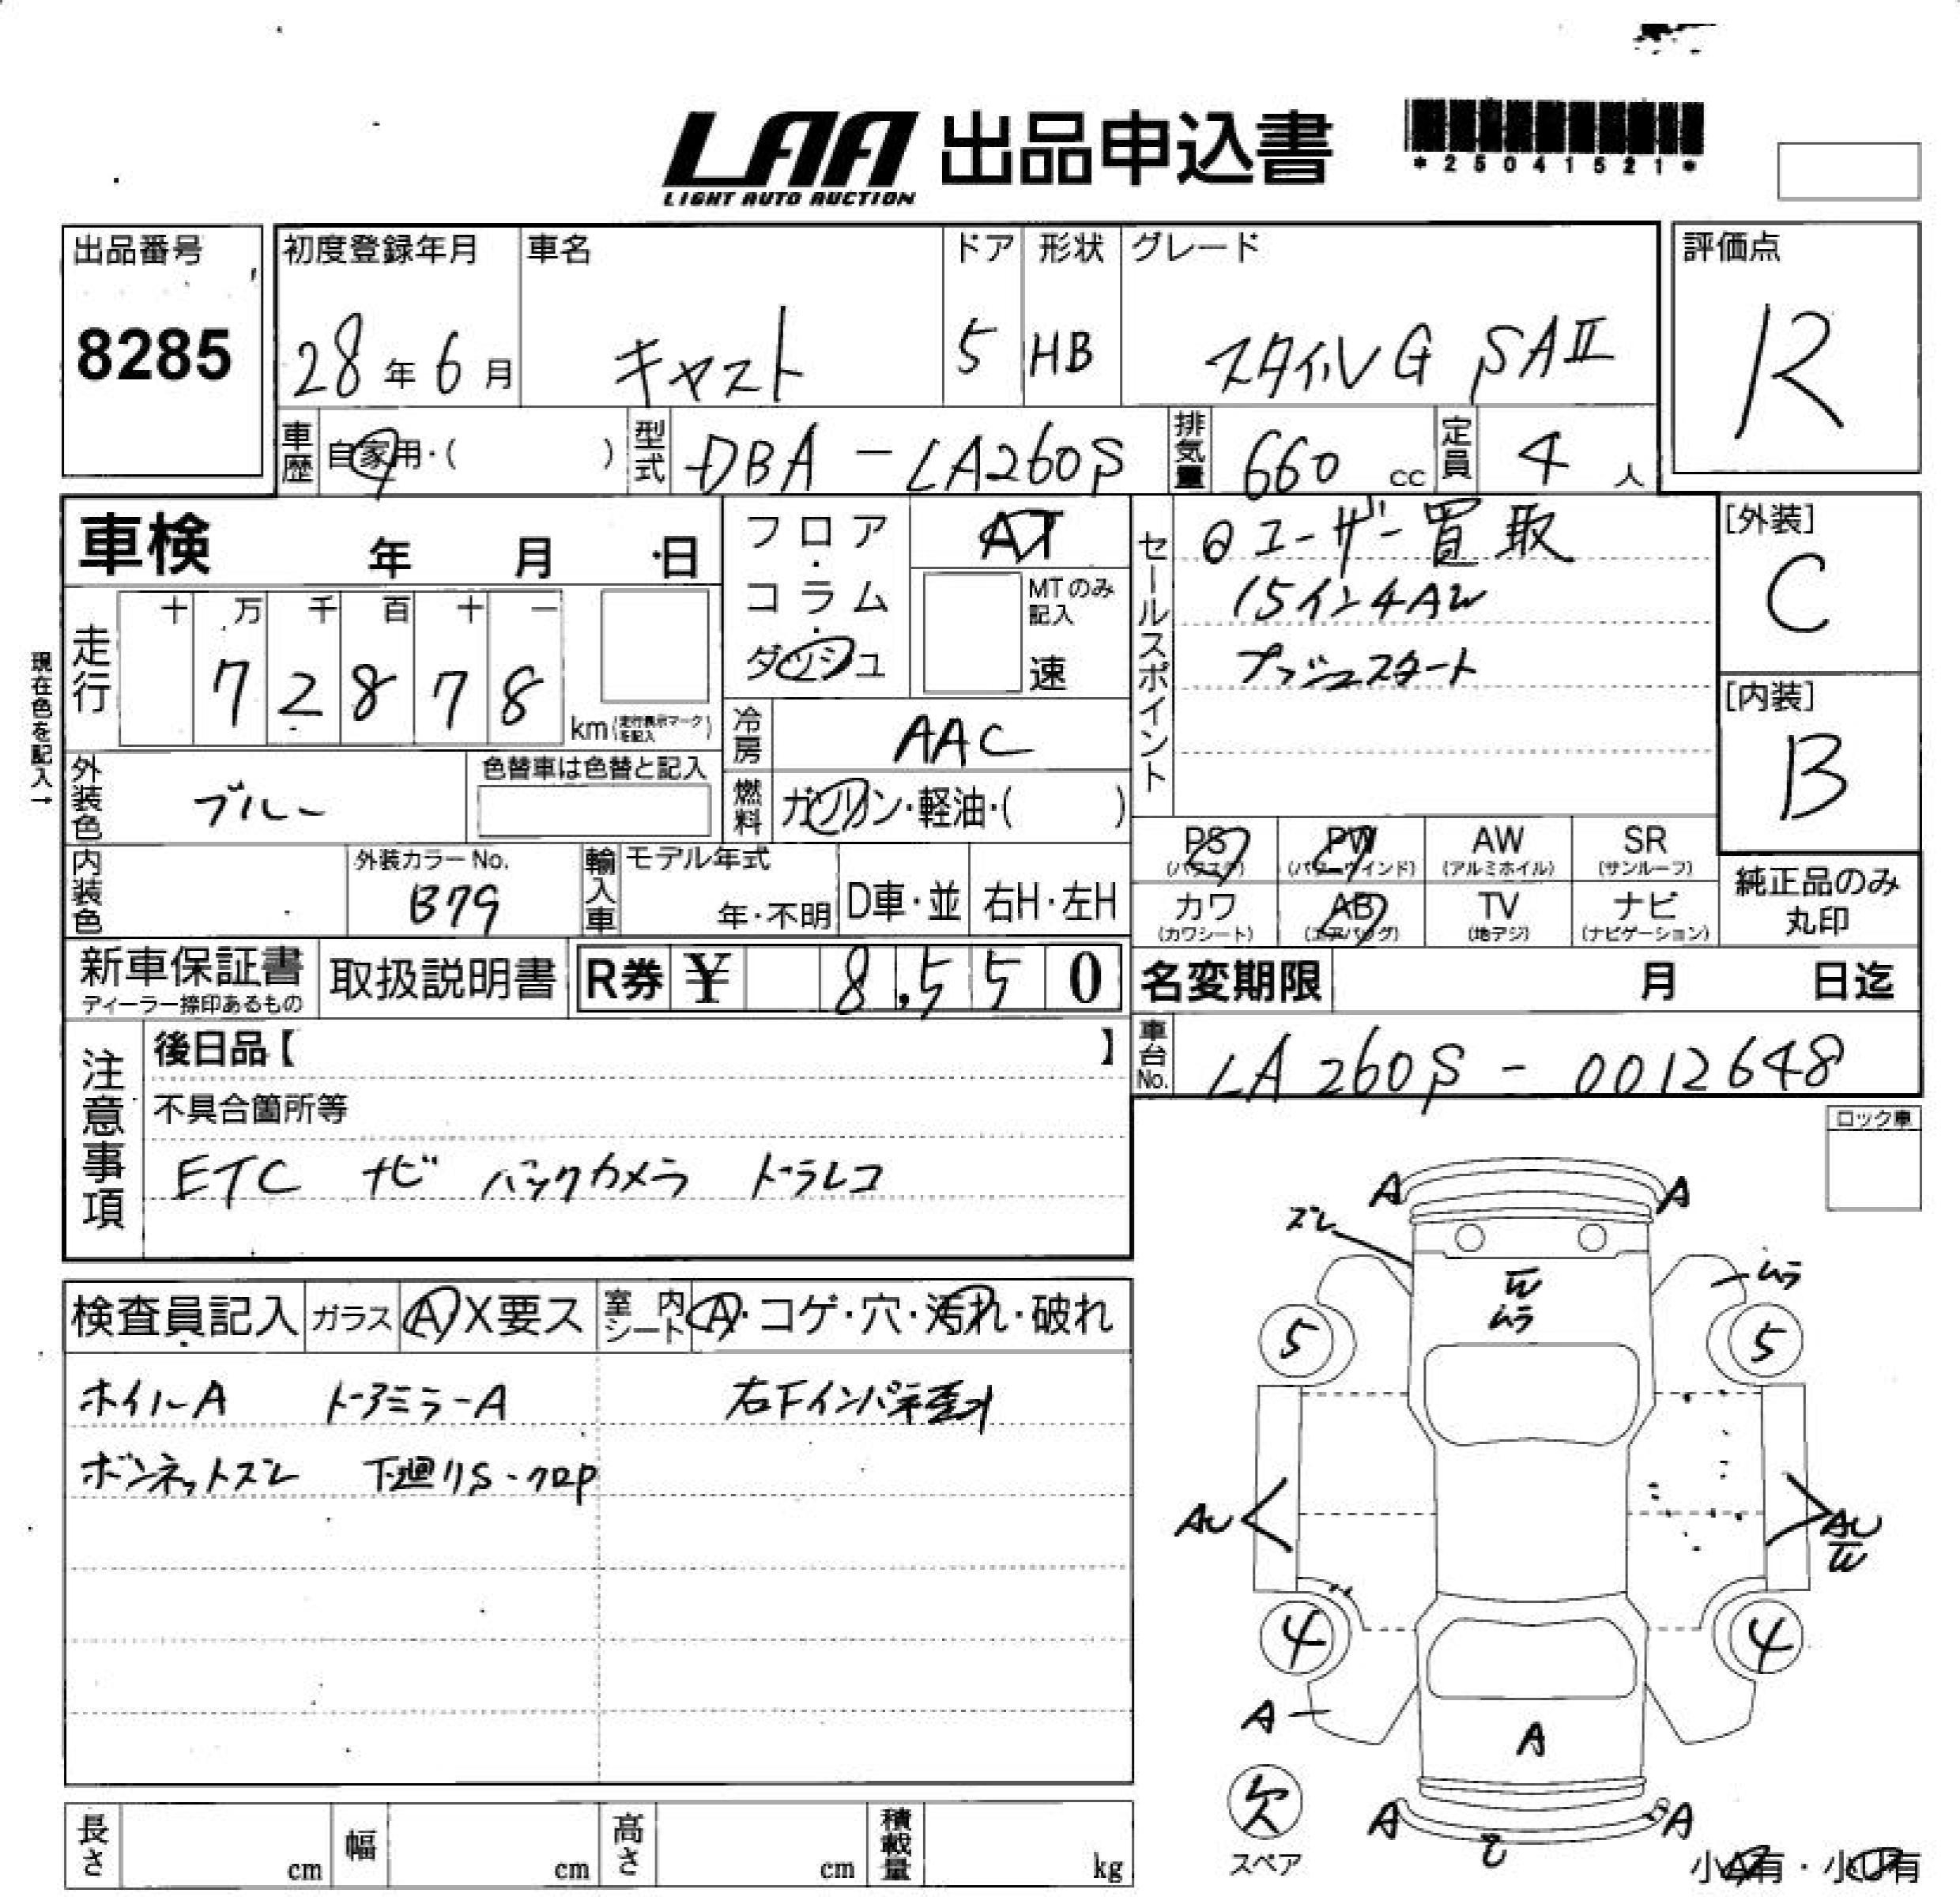 LAA 出品申込書
LIGHT AUTO AUCTION
*25041521*
出品番号
8285
初度登録年月 車名 ドア 形状 グレード
28年6月 キャスト 5 HB スタイルG SAII
評価点
R
車歴 自家用・( ) 型式 DBA-LA260S 排気量 660 cc 定員 4 人
車検 年 月 日
フロア・コラム・ダッシュ
AT
MTのみ記入
速
セールスポイント
ユーザー買取
15インチAW
プッシュスタート
[外装]
C
[内装]
B
現在色を記入→
走行 十 万 千 百 十 一
7 2 8 7 8 km (走行表示マークを記入)
冷房 AAC
外装色 ブルー 色替車は色替と記入
燃料 ガソリン・軽油・( )
内装色 外装カラーNo. B79
輸入車 モデル年式 年・不明 D車・並 右H・左H
PS (パワステ) PW (パワーウインド) AW (アルミホイル) SR (サンルーフ)
カワ (カワシート) AB (エアバッグ) TV (地デジ) ナビ (ナビゲーション)
純正品のみ丸印
新車保証書 ディーラー捺印あるもの 取扱説明書 R券 ¥ 8,550
名変期限 月 日迄
車台No. LA260S-0012648
注意事項
後日品【 】
不具合箇所等
ETC ナビ バックカメラ ドラレコ
ロック車
検査員記入 ガラス A X要ス 室内シート A・コゲ・穴・汚れ・破れ
ホイルA ドアミラーA 右Fインパネ歪み
ボンネットズレ 下廻りS・クロP
A A
ズレ
W
ムラ
ムラ
5 5
AU AU
W
4 4
A
A
欠
スペア
A A
小A有・小U有
長さ cm 幅 cm 高さ cm 積載量 kg